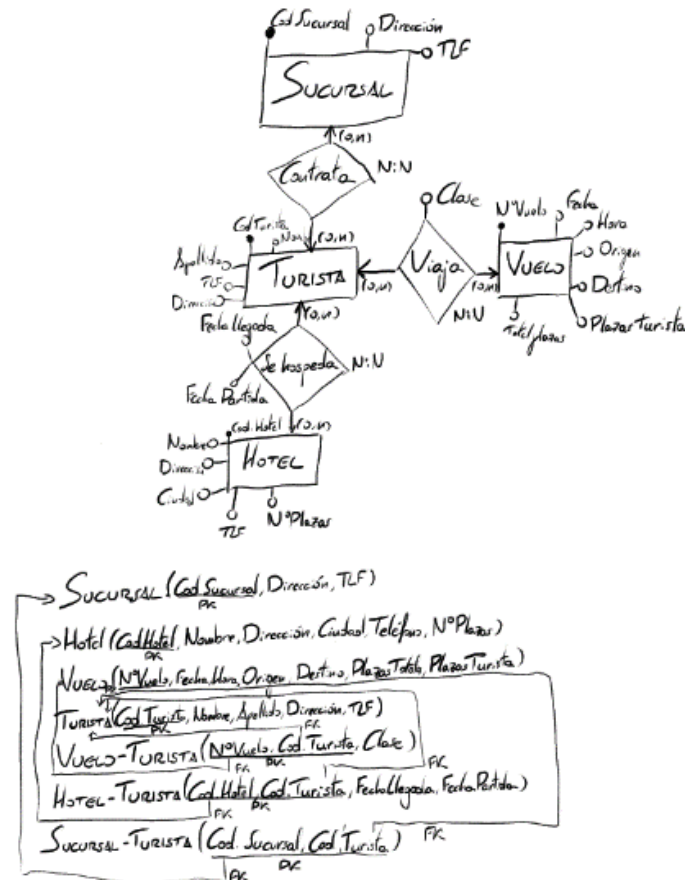 Cod Sucursal
Dirección
TLF
SUCURSAL
(0,n)
Contrata
N:N
Clase
Cod Turista
Nom
(0,n)
Apellido
TLF
Dirección
TURISTA
(0,n)
Viaja
(0,n)
N:N
NºVuelo
Fecha
Hora
Origen
VUELO
Destino
Total plazas
Plazas Turista
Fecha llegada
(0,n)
Se hospeda
N:N
Fecha Partida
Cod.Hotel
(0,n)
Nombre
Dirección
HOTEL
Ciudad
TLF
NºPlazas
SUCURSAL (Cod Sucursal, Dirección, TLF)
PK
Hotel (Cod Hotel, Nombre, Dirección, Ciudad, Teléfono, NºPlazas)
PK
VUELO (NºVuelo, Fecha, Hora, Origen, Destino, Plazas Totals, Plazas Turista)
TURISTA (Cod Turista, Nombre, Apellido, Dirección, TLF)
PK FK
VUELO-TURISTA (NºVuelo, Cod. Turista, Clase)
FK PK FK
HOTEL-TURISTA (Cod.Hotel, Cod. Turista, Fecha llegada, Fecha Partida)
FK PK
SUCURSAL-TURISTA (Cod. Sucursal, Cod. Turista) FK
FK PK